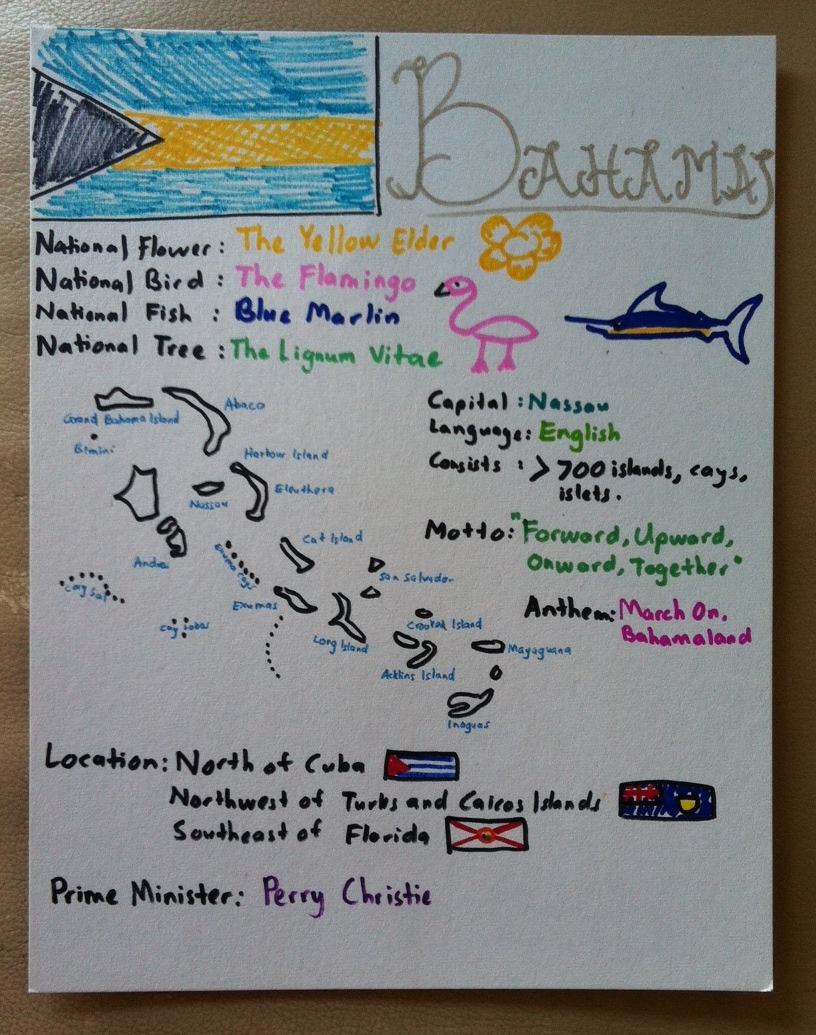 BAHAMAS
National Flower: The Yellow Elder
National Bird: The Flamingo
National Fish: Blue Marlin
National Tree: The Lignum Vitae
Grand Bahama Island
Abaco
Bimini
Harbour Island
Nassau
Eleuthera
Andros
Cat Island
Exuma Cays
San Salvador
Cay Sal
Exumas
Cay Lobos
Long Island
Crooked Island
Acklins Island
Mayaguana
Inaguas
Capital: Nassau
Language: English
Consists: > 700 islands, cays,
islets.
Motto: "Forward, Upward,
Onward, Together"
Anthem: March On,
Bahamaland
Location: North of Cuba
Northwest of Turks and Caicos Islands
Southeast of Florida
Prime Minister: Perry Christie